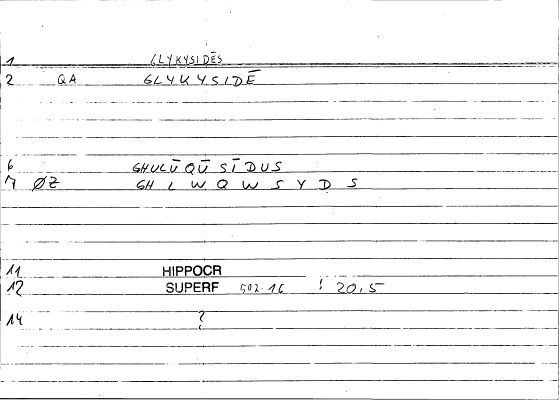 1 GLYKYSIDĒS
2 QA GLYKYSIDĒ
6 GHULŪQŪSĪDUS
7 ØZ GH L W Q W S Y D S
11 HIPPOCR
12 SUPERF 502.16 ! 20.5
14 ?